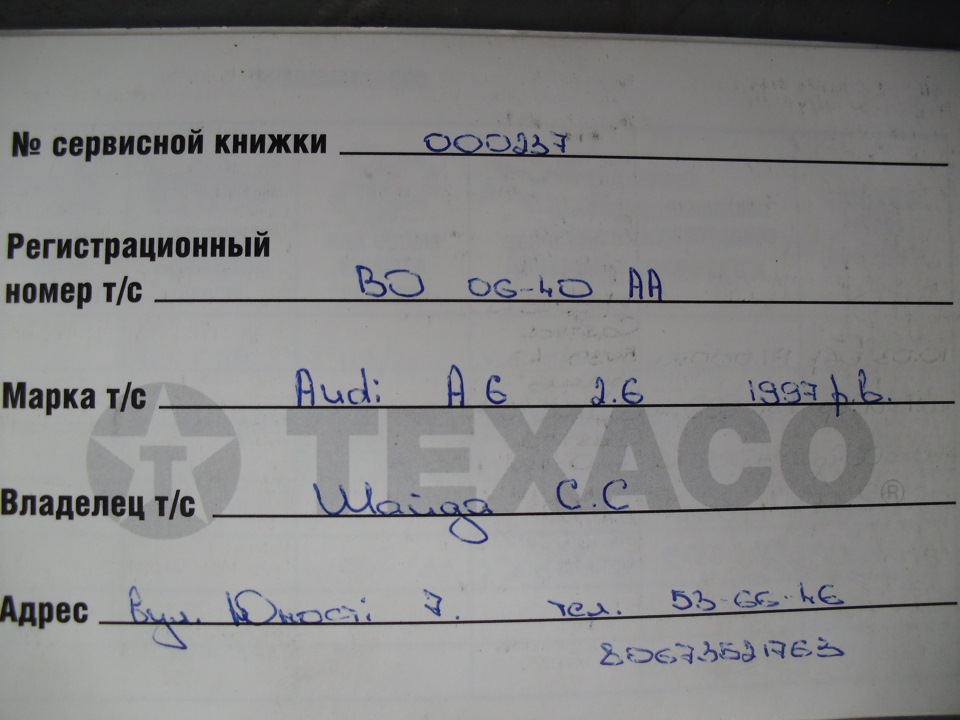 № сервисной книжки 000237
Регистрационный
номер т/с ВО 06-40 АА
Марка т/с Audi A6 2.6 1997 р.в.
TEXACO ®
Владелец т/с Шайда С.С
Адрес вул. Юності 7. тел. 53-66-46
80673521763